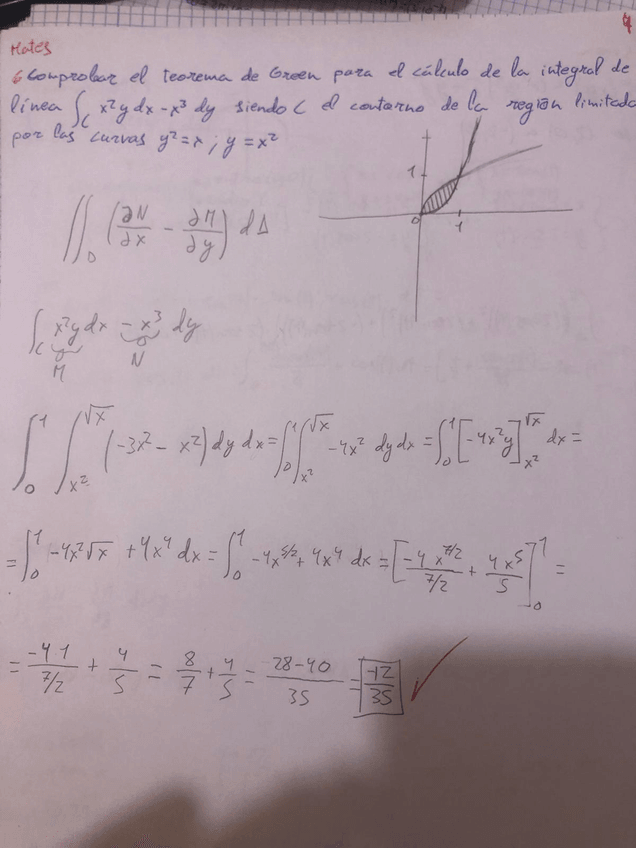 Mates
6 Comprobar el teorema de Green para el cálculo de la integral de
línea ∫_C x²y dx - x³ dy siendo C el contorno de la región limitada
por las curvas y² = x ; y = x²
1
0 1
∬_D (∂N/∂x - ∂M/∂y) dA
∫_C x²y dx - x³ dy
M N
∫_0^1 ∫_{x²}^{√x} (-3x² - x²) dy dx = ∫_0^1 ∫_{x²}^{√x} -4x² dy dx = ∫_0^1 [-4x²y]_{x²}^{√x} dx =
= ∫_0^1 -4x²√x + 4x⁴ dx = ∫_0^1 -4x^{5/2} + 4x⁴ dx = [-4x^{7/2}/(7/2) + 4x⁵/5]_0^1 =
= -4·1/(7/2) + 4/5 = 8/7 + 4/5 = (28-40)/35 = -12/35